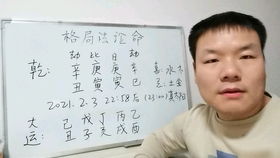 格局法论命
劫 比 日 劫
乾: 辛 庚 庚 辛 喜:水木
丑 寅 寅 巳 忌:土金
2021.2.3 22:58后 (23:00)
大 己 戊 丁 丙 乙
运: 丑 子 亥 戌 酉